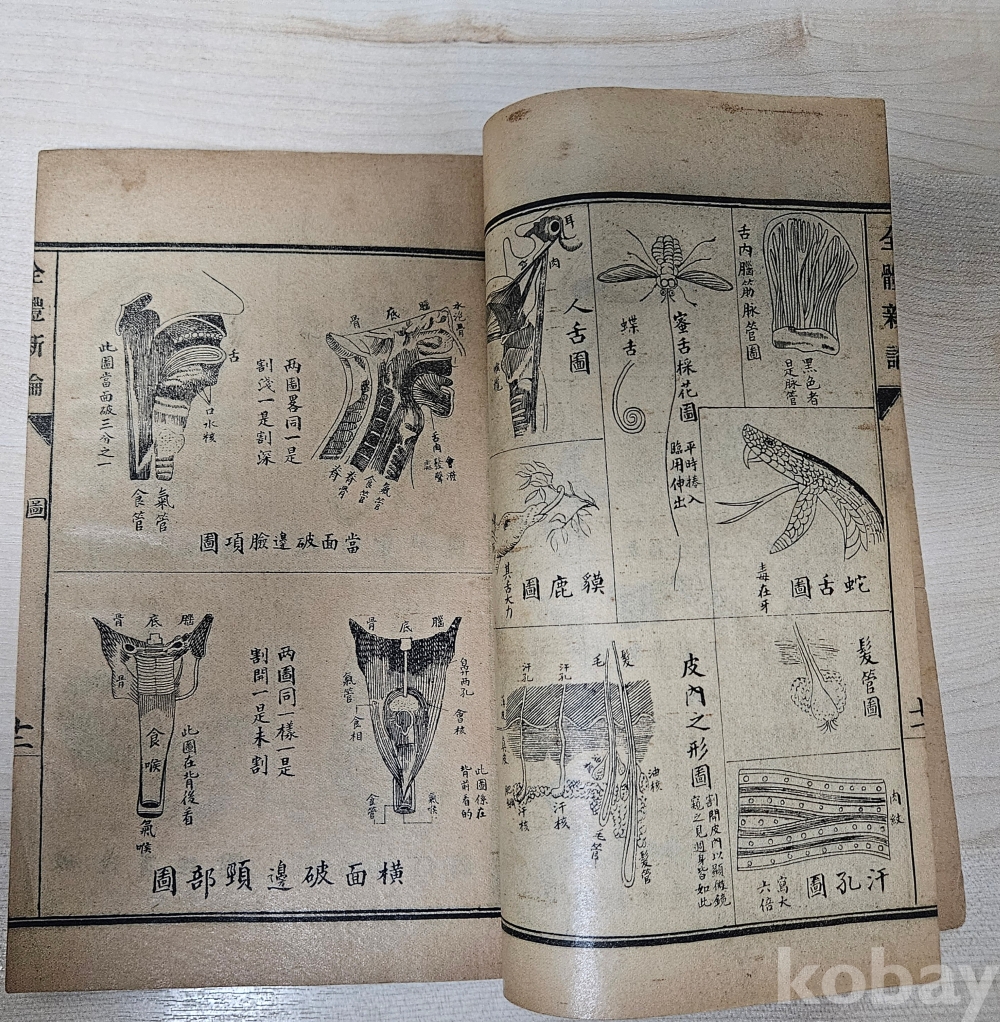 全體新論
舌內腦筋脉管圖
黑色者
是脉管
蜜舌採花圖
平時捲入
臨用伸出
蝶舌
耳
肉
人舌圖
蛇舌圖
毒在牙
貘鹿圖
其舌大力
髮管圖
皮內之形圖
割開皮內以顯微鏡
窺之見週身皆如此
汗孔
汗孔
毛
髮
汗核
汗核
毛管
油核
髮管
肉紋
汗孔圖
寫大
六倍
十一
全體新論
圖
十二
腦
底
骨
水泡骨
兩圖畧同一是
割淺一是割深
舌
口水核
此圖當面破三分之一
氣管
食管
氣管
食管
脊骨
當面破邊臉項圖
腦
底
骨
鼻兩孔
會核
氣管
食相
此圖係在
背前看的
氣喉
食管
兩圖同一樣一是
割開一是未割
腦
底
骨
骨
食喉
此圖在背後看
氣喉
橫面破邊頸部圖
kobay